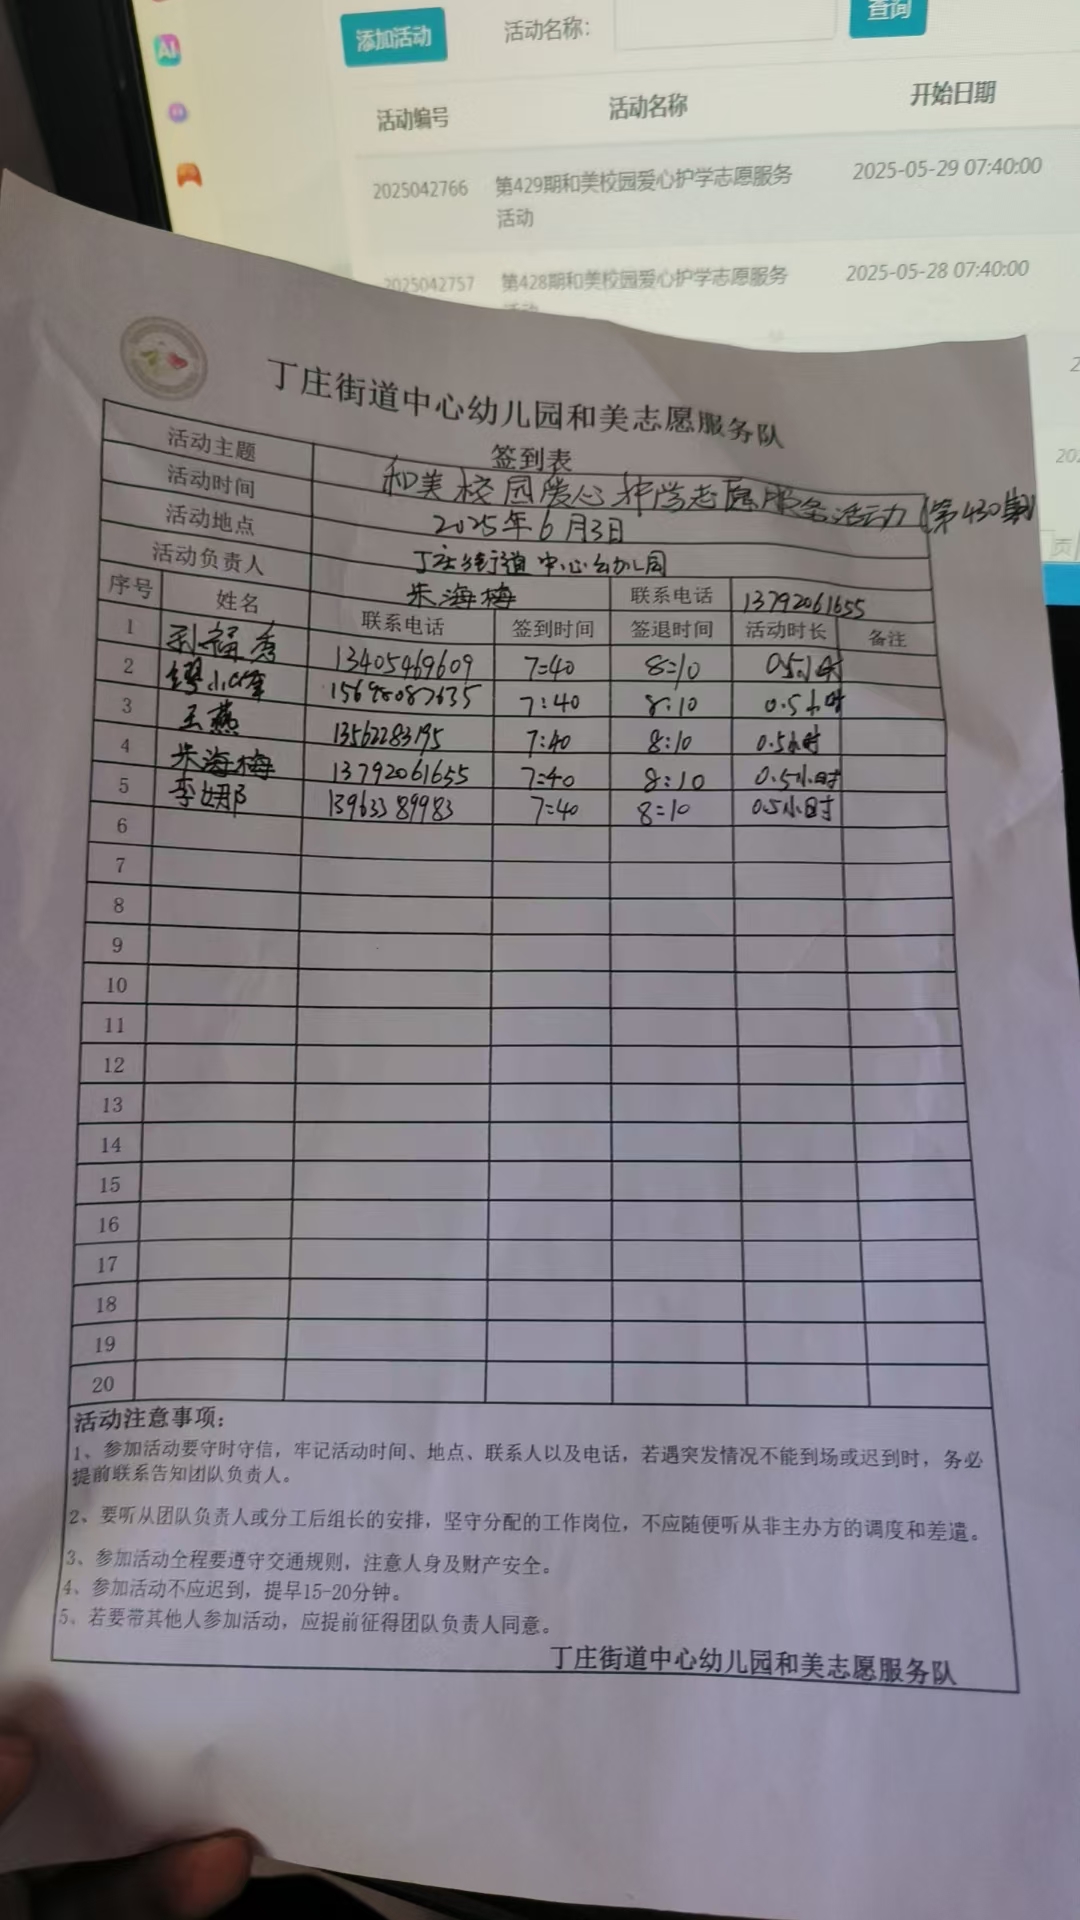 AI
添加活动 活动名称: 查询
活动编号 活动名称 开始日期
2025042766 第429期和美校园爱心护学志愿服务 2025-05-29 07:40:00
活动
2025042757 第428期和美校园爱心护学志愿服务 2025-05-28 07:40:00
活动
页
丁庄街道中心幼儿园和美志愿服务队
签到表
活动主题 和美校园爱心护学志愿服务活动(第430期)
活动时间 2025年6月3日
活动地点 丁庄街道中心幼儿园
活动负责人 朱海梅 联系电话 13792061655
序号 姓名 联系电话 签到时间 签退时间 活动时长 备注
1 刘福秀 13405469609 7:40 8:10 0.5小时
2 7:40 8:10 0.5小时
3 王燕 13562283195 7:40 8:10 0.5小时
4 朱海梅 13792061655 7:40 8:10 0.5小时
5 李娜 13963389983 7:40 8:10 0.5小时
6
7
8
9
10
11
12
13
14
15
16
17
18
19
20
活动注意事项:
1、参加活动要守时守信，牢记活动时间、地点、联系人以及电话，若遇突发情况不能到场或迟到时，务必
提前联系告知团队负责人。
2、要听从团队负责人或分工后组长的安排，坚守分配的工作岗位，不应随便听从非主办方的调度和差遣。
3、参加活动全程要遵守交通规则，注意人身及财产安全。
4、参加活动不应迟到，提早15-20分钟。
5、若要带其他人参加活动，应提前征得团队负责人同意。
丁庄街道中心幼儿园和美志愿服务队